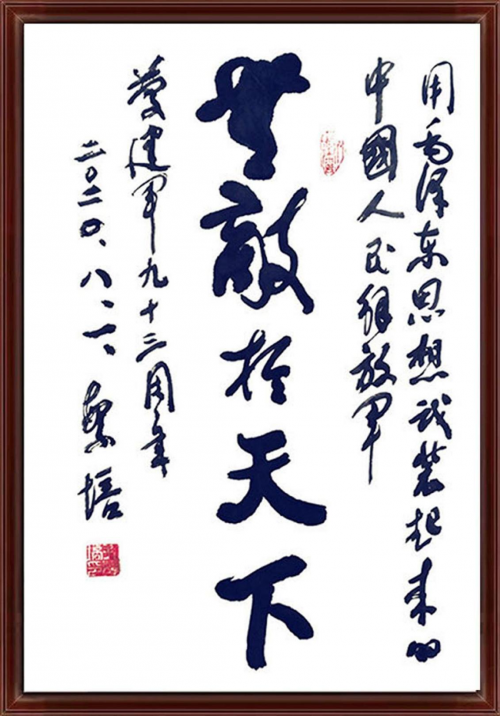 用毛泽东思想武装起来的
中國人民解放军
無敵於天下
慶建军九十三周年
二〇二〇、八、一、